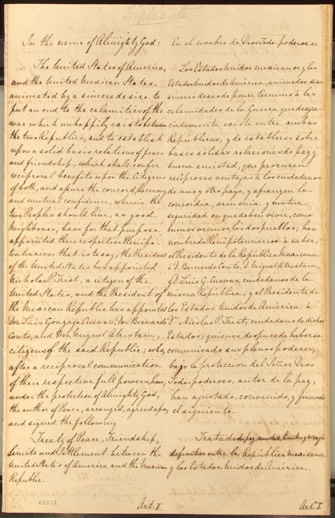 Duplicate
In the name of Almighty God:
The United States of America,
and the United Mexican States,
animated by a sincere desire to
put an end to the calamities of the
war which unhappily exists between
the two Republics, and to establish
upon a solid basis relations of peace
and friendship, which shall confer
reciprocal benefits upon the citizens
of both, and assure the concord, harmony
and mutual confidence, wherein the
two Peoples should live, as good
Neighbours, have for that purpose
appointed their respective Plenipo-
tentiaries: that is to say, the President
of the United States has appointed
Nicholas P. Trist, a citizen of the
United States, and the President of
the Mexican Republic has appointed
Don Luis Gonzaga Cuevas, Don Bernardo
Couto, and Don Miguel Atristain,
citizens of the said Republic; who,
after a reciprocal communication
of their respective full powers, have,
under the protection of Almighty God,
the author of Peace, arranged, agreed upon,
and signed the following
Treaty of Peace, Friendship,
Limits and Settlement between the
United States of America and the Mexican
Republic.
Art: I.
En el nombre de Dios Todo poderoso:
Los Estados Unidos mexicanos y los
Estados Unidos de América, animados de un
sincero deseo de poner término á las
calamidades de la Guerra que desgra-
ciadamente existe entre ambas
Repúblicas, y de establecer sobre
bases sólidas relaciones de paz y
buena amistad, que procuren
recíprocas ventajas á los ciudadanos
de uno y otro pays, y afianzen la
concordia, armonía y mutua
seguridad en que deben vivir, como
buenos vecinos, los dos pueblos; han
nombrado Plenipotenciarios: á saber,
el Presidente de la República mexicana
á D. Bernardo Couto, D. Miguel Atristain
y D. Luis G. Cuevas, ciudadanos de la
misma República; y el Presidente de
los Estados Unidos de América á
D. Nicolas P. Trist, ciudadano de dichos
Estados; quienes, despues de haberse
comunicado sus plenos poderes,
bajo la proteccion del Señor Dios
Todo poderoso, autor de la paz,
han ajustado, convenido, y firmado
el siguiente
Tratado de paz, amistad, límites y arreglo
definitivo entre la República mexicana
y los Estados Unidos de América.
Art: I.